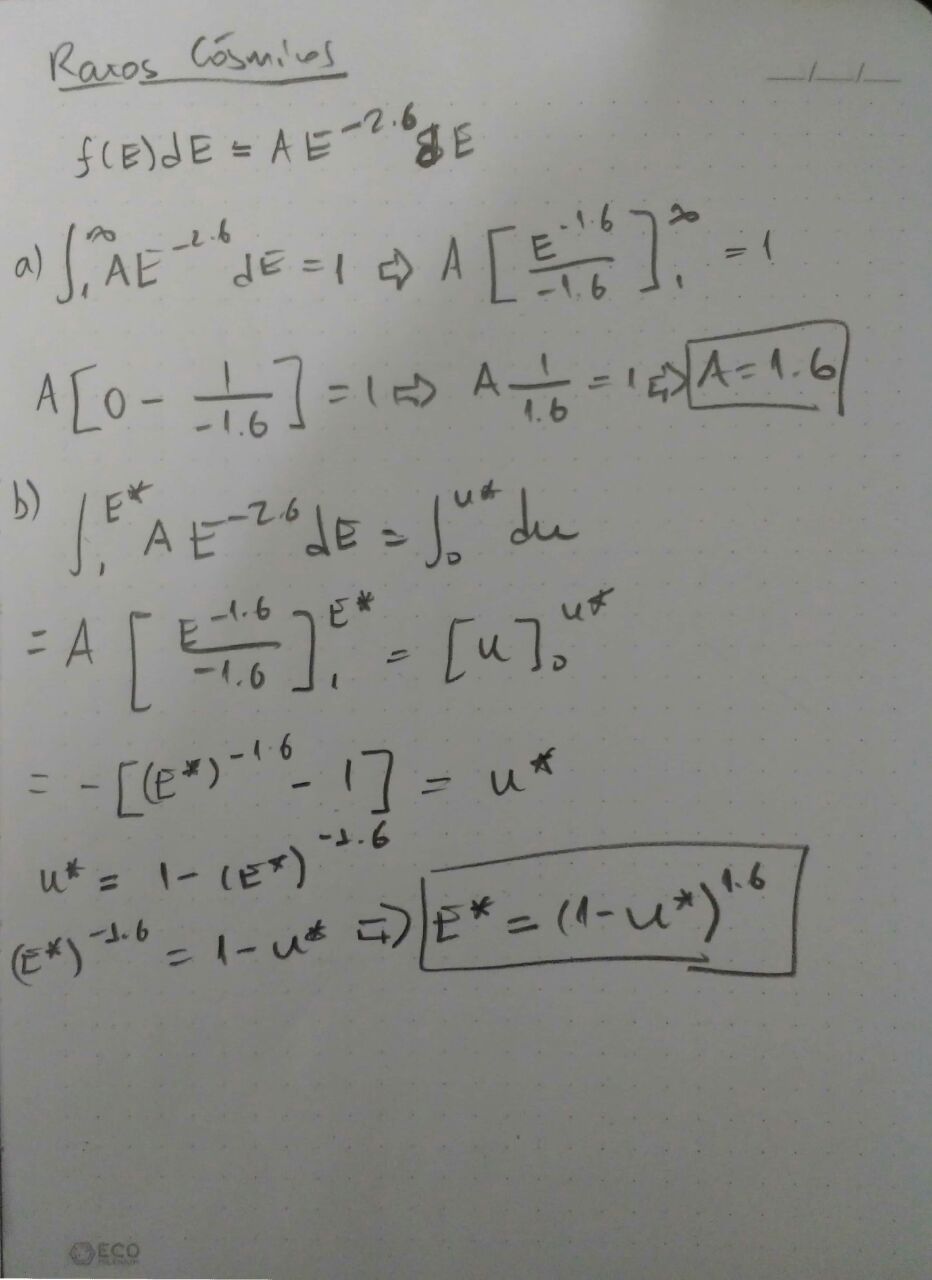 Raios Cósmicos
__/__/__
f(E)dE = A E^{-2.6} dE
a) ∫_1^∞ A E^{-2.6} dE = 1 ⇒ A [E^{-1.6}/-1.6]_1^∞ = 1
A[0 - 1/-1.6] = 1 ⇒ A 1/1.6 = 1 ⇒ A = 1.6
b) ∫_1^{E*} A E^{-2.6} dE = ∫_0^{u*} du
= A [E^{-1.6}/-1.6]_1^{E*} = [u]_0^{u*}
= -[(E*)^{-1.6} - 1] = u*
u* = 1 - (E*)^{-1.6}
(E*)^{-1.6} = 1 - u* ⇒ E* = (1-u*)^{1.6}
ECO